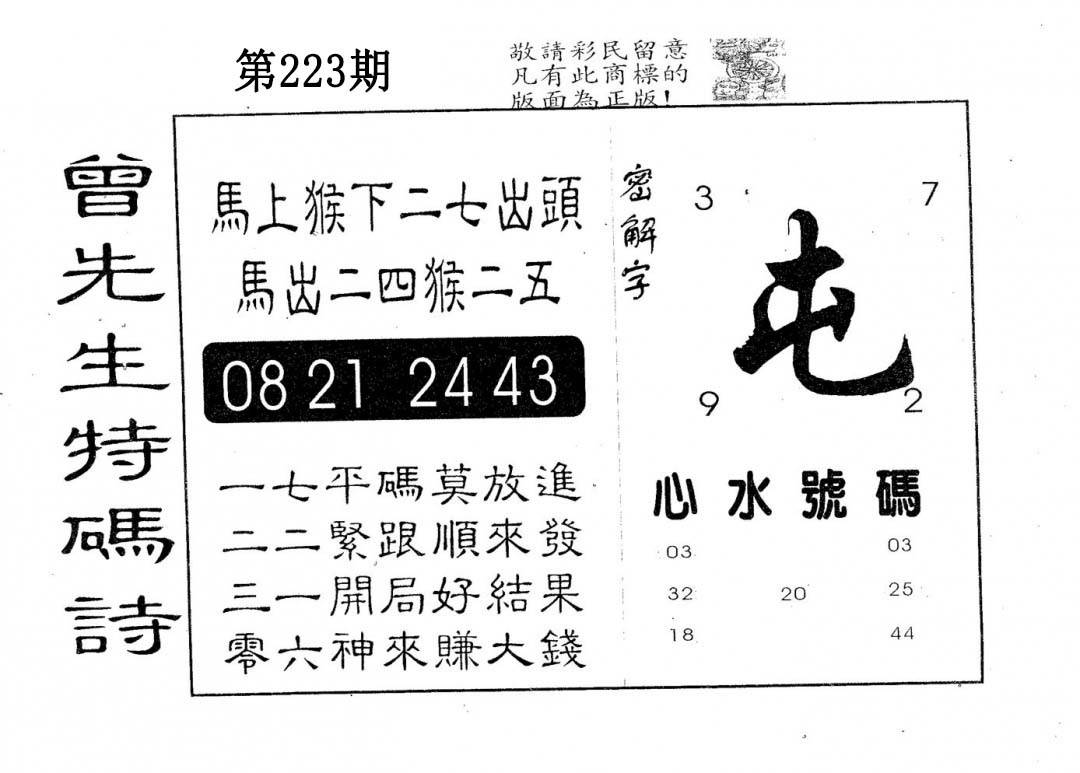 第223期
敬請彩民留意
凡有此商標的
版面為正版!
曾先生特碼詩
馬上猴下二七出頭
馬出二四猴二五
08 21 24 43
一七平碼莫放進
二二緊跟順來發
三一開局好結果
零六神來賺大錢
密解字
3 7
屯
9 2
心水號碼
03 03
32 20 25
18 44